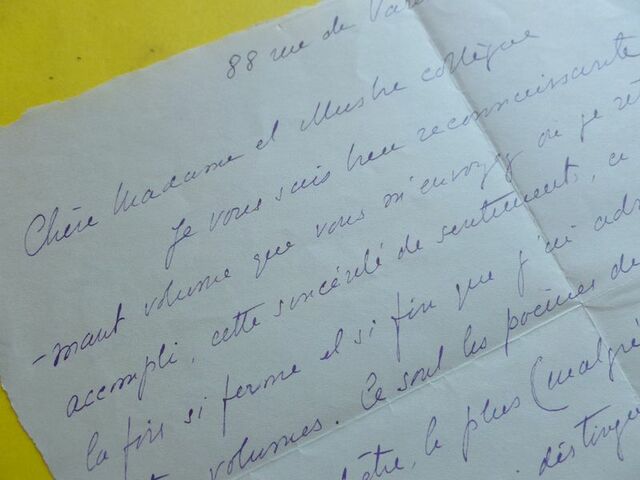 88 rue de Var
Chère Madame et Illustre collègue
Je vous suis bien reconnaissante
-mant volume que vous m'envoyez où je ret
accompli, cette sincérité de sentiments, a
la fois si ferme et si fin que j'ai adr
volumes. Ce sont les poèmes de
être, le plus (malgré
distingu